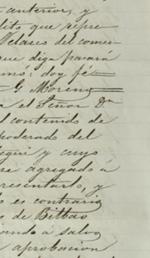 anterior, y
dito que repre
Velares del comer
que diga parara
doy fé
G. Moreno
a el Señor Dr
el contenido de
poderado del
seguir y cuyo
se agregado a
presentarlo, y
es contrario
de Bilbao
a salvo
aprobacion